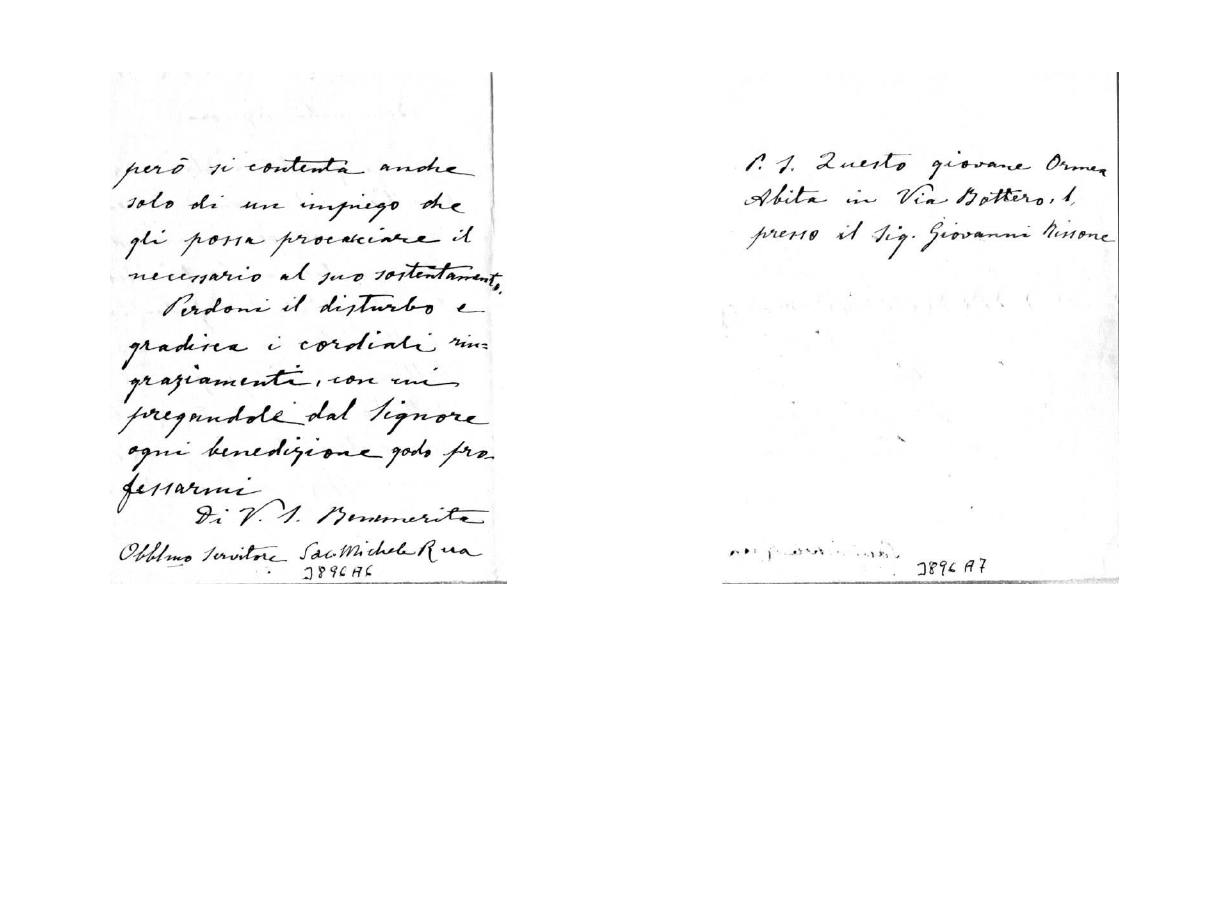 però si contenta anche
solo di un impiego che
gli possa procacciare il
necessario al suo sostentamento.
Perdoni il disturbo e
gradisca i cordiali rin=
graziamenti, con cui
pregandole dal Signore
ogni benedizione godo pro-
fessarmi
Di V. S. Benemerita
Obblmo servitore Sac. Michele Rua
J896A6
P. S. Questo giovane Ormea
Abita in Via Bottero, 1,
presso il Sig. Giovanni Nissone
J896A7